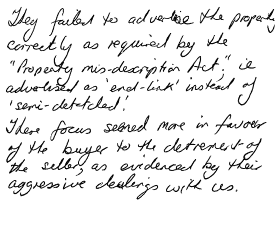 They failed to advertise the property
correctly as required by the
"Property mis-description Act," ie
advertised as 'end-link' instead of
'semi-detatched.'
There focus seemed more in favour
of the buyer to the detrement of
the seller, as evidenced by their
aggressive dealings with us.